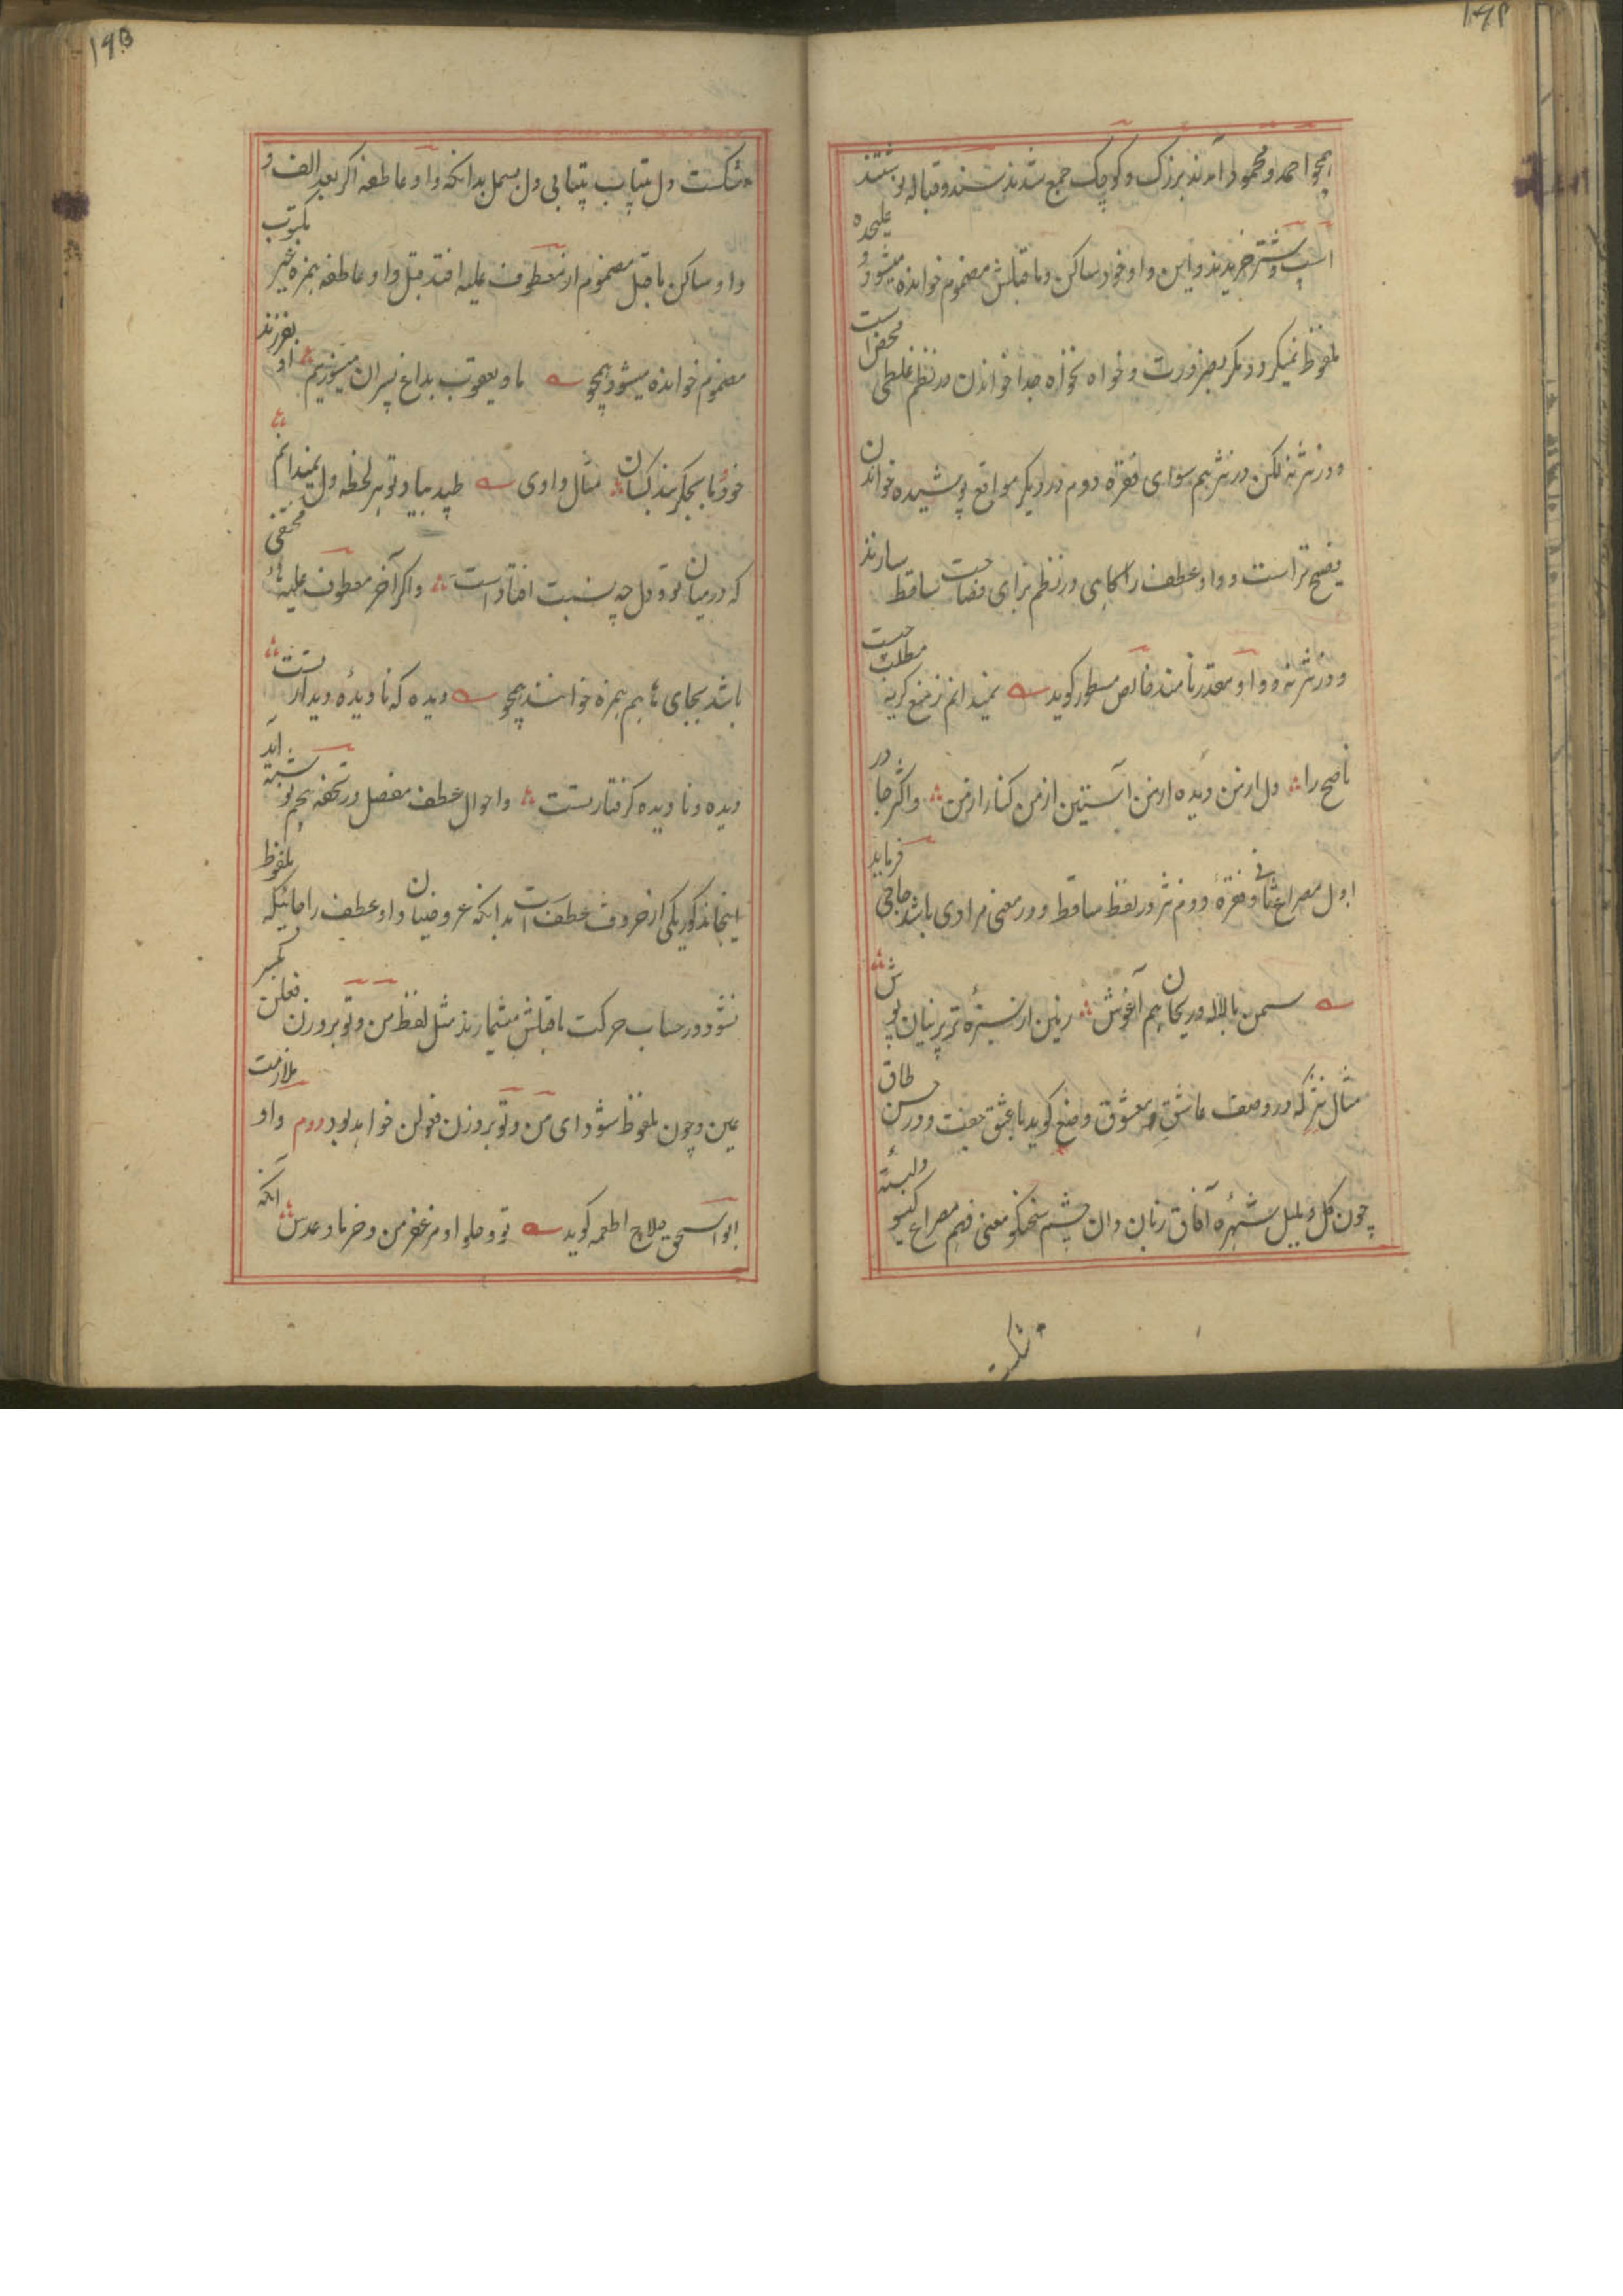 ۱۶۴
همچو احمد و محمود آمدند بزرگ و کوچک جمع شدند سند و قباله نوشتند
اسپ و شتر خریدند و این واو خود ساکن و ماقبلش مضموم خوانده میشود و علیحده
ملفوظ نمیگردد مگر بضرورت و خواه نخواه جدا خواندن در نظم غلطی محض است
و در نثر نه لکن در نثر هم سوای فقره دوم در دیگر مواقع پوشیده خواندن
فصیح تر است و واو عطف را گاهی در نظم برای فصاحت ساقط سازند
و در نثر نه و واو مقدر مانند فایض مسطور گوید نمیدانم ز منع گریه مطلب چیست
ناصح را دل از من دیده از من آستین از من کنار از من و اکثر جا در
اول مصراع ثانی و فقرهٔ دوم نثر در لفظ ساقط و در معنی مرادی باشد حاجی فرماید
سمن با لاله و ریحان هم آغوش زمین از سبزهٔ تر پرنیان پوش
مثال نثر که در وصف عاشق و معشوق وضع گوید با عشق جفت و در حسن طاق
چون گل و بلبل شهره آفاق زبان دان چشم سخنگو معنی فهم مصراع گیسو دلبسته
شکست
۱۶۵
شکست دل بیتاب بیتابی دل بسمل بدانکه واو عاطفه اگر بعد الف و
واو ساکن ماقبل مضموم از معطوف علیه افتد قبل واو عاطفه همزه غیر مکتوب
مضموم خوانده میشود همچو ما و یعقوب بداغ پسران میسوزیم او بفرزند
خود ما بجگربند کسان مثال واوی طپد بیاد تو هر لحظه دل نمیدانم
که درمیان تو و دل چه نسبت افتاد است و اگر آخر معطوف علیه هاء مختفی
باشد بجای ها هم همزه خوانند همچو دیده که نادیدهٔ دیدار تست
دیده و نادیده گرفتار تست و احوال عطف مفصل در تحفه هم نوشته آید
اینجا مذکور یکی از حروف عطف است بدانکه عروضیان واو عطف را جائیکه ملفوظ
نشود در حساب حرکت ماقبلش میشمارند مثل لفظ من و تو بر وزن فعلن بکسر
عین و چون ملفوظ شود ای من و تو بر وزن فعولن خواهد بود دوم واو ملازمت
ابو اسحق حلاج اطعمه گوید تو و حلوا و مزعفر من و خرما و عدس آنکه